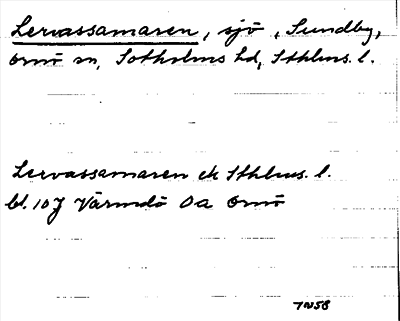 Lervassamaren, sjö, Sundby,
Ornö sn, Sotholms hd, Sthlms. l.
Lervassamaren ek Sthlms. l.
bl. 10J Värmdö Oa Ornö
7N58